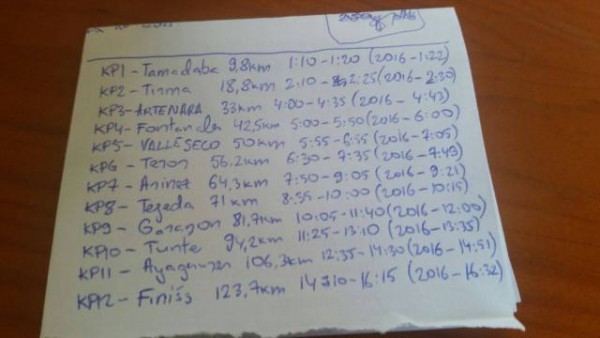 KP1 - Tamadaba 9,8km 1:10 - 1:20 (2016 - 1:22)
KP2 - Tirma 18,8km 2:10 - 2:25 (2016 - 2:30)
KP3 - ARTENARA 33km 4:00 - 4:35 (2016 - 4:43)
KP4 - Fontanales 42,5km 5:00 - 5:50 (2016 - 6:00)
KP5 - VALLESECO 50km 5:55 - 6:55 (2016 - 7:05)
KP6 - Teror 56,2km 6:30 - 7:35 (2016 - 7:49)
KP7 - Arinez 64,3km 7:50 - 9:05 (2016 - 9:21)
KP8 - Tejeda 71km 8:55 - 10:00 (2016 - 10:15)
KP9 - Garanon 81,7km 10:05 - 11:40 (2016 - 12:00)
KP10 - Tunte 94,2km 11:25 - 13:10 (2016 - 13:35)
KP11 - Ayagaures 106,3km 12:35 - 14:30 (2016 - 14:51)
KP12 - Finišs 123,7km 14:10 - 16:15 (2016 - 16:32)